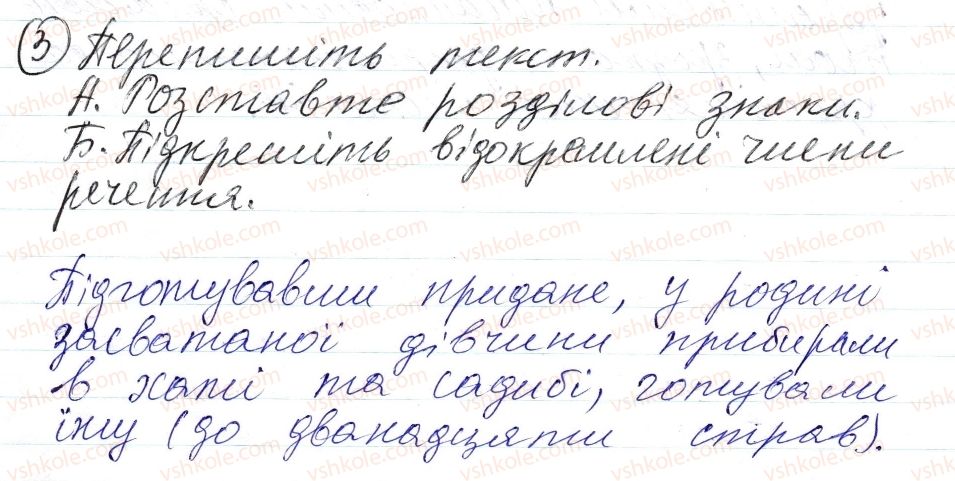 3 Перепишіть текст.
А. Розставте розділові знаки.
Б. Підкресліть відокремлені члени
речення.
Підготувавши придане, у родині
засватаної дівчини прибирали
в хаті та садибі, готували
їжу (до дванадцяти страв).